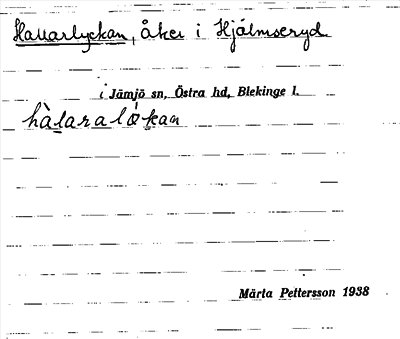 Hallarlyckan, åker i Hjälmseryd
i Jämjö sn, Östra hd, Blekinge l.
hàlaralö́kan
Märta Pettersson 1938